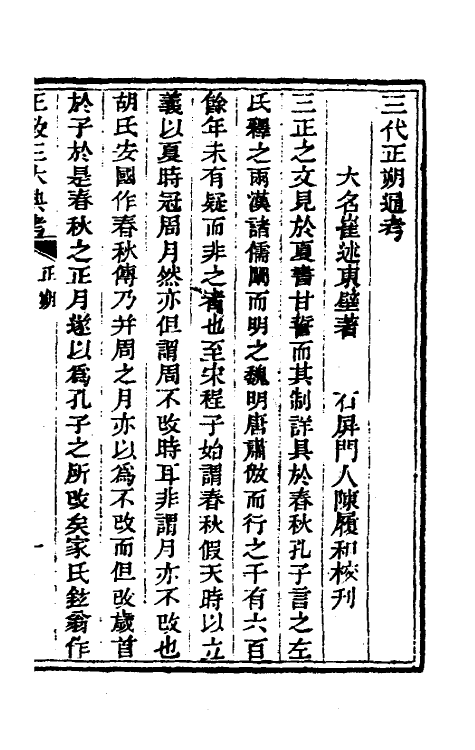 三代正朔通考
大名崔述東壁著　石屏門人陳履和校刊
三正之文見於夏書甘誓而其制詳具於春秋孔子言之左
氏釋之兩漢諸儒闡而明之魏明唐肅倣而行之千有六百
餘年未有疑而非之者也至宋程子始謂春秋假天時以立
義以夏時冠周月然亦但謂周不改時耳非謂月亦不改也
胡氏安國作春秋傳乃并周之月亦以爲不改而但改歲首
於子於是春秋之正月遂以爲孔子之所改矣家氏鉉翁作
王政三大典考　正朔　一